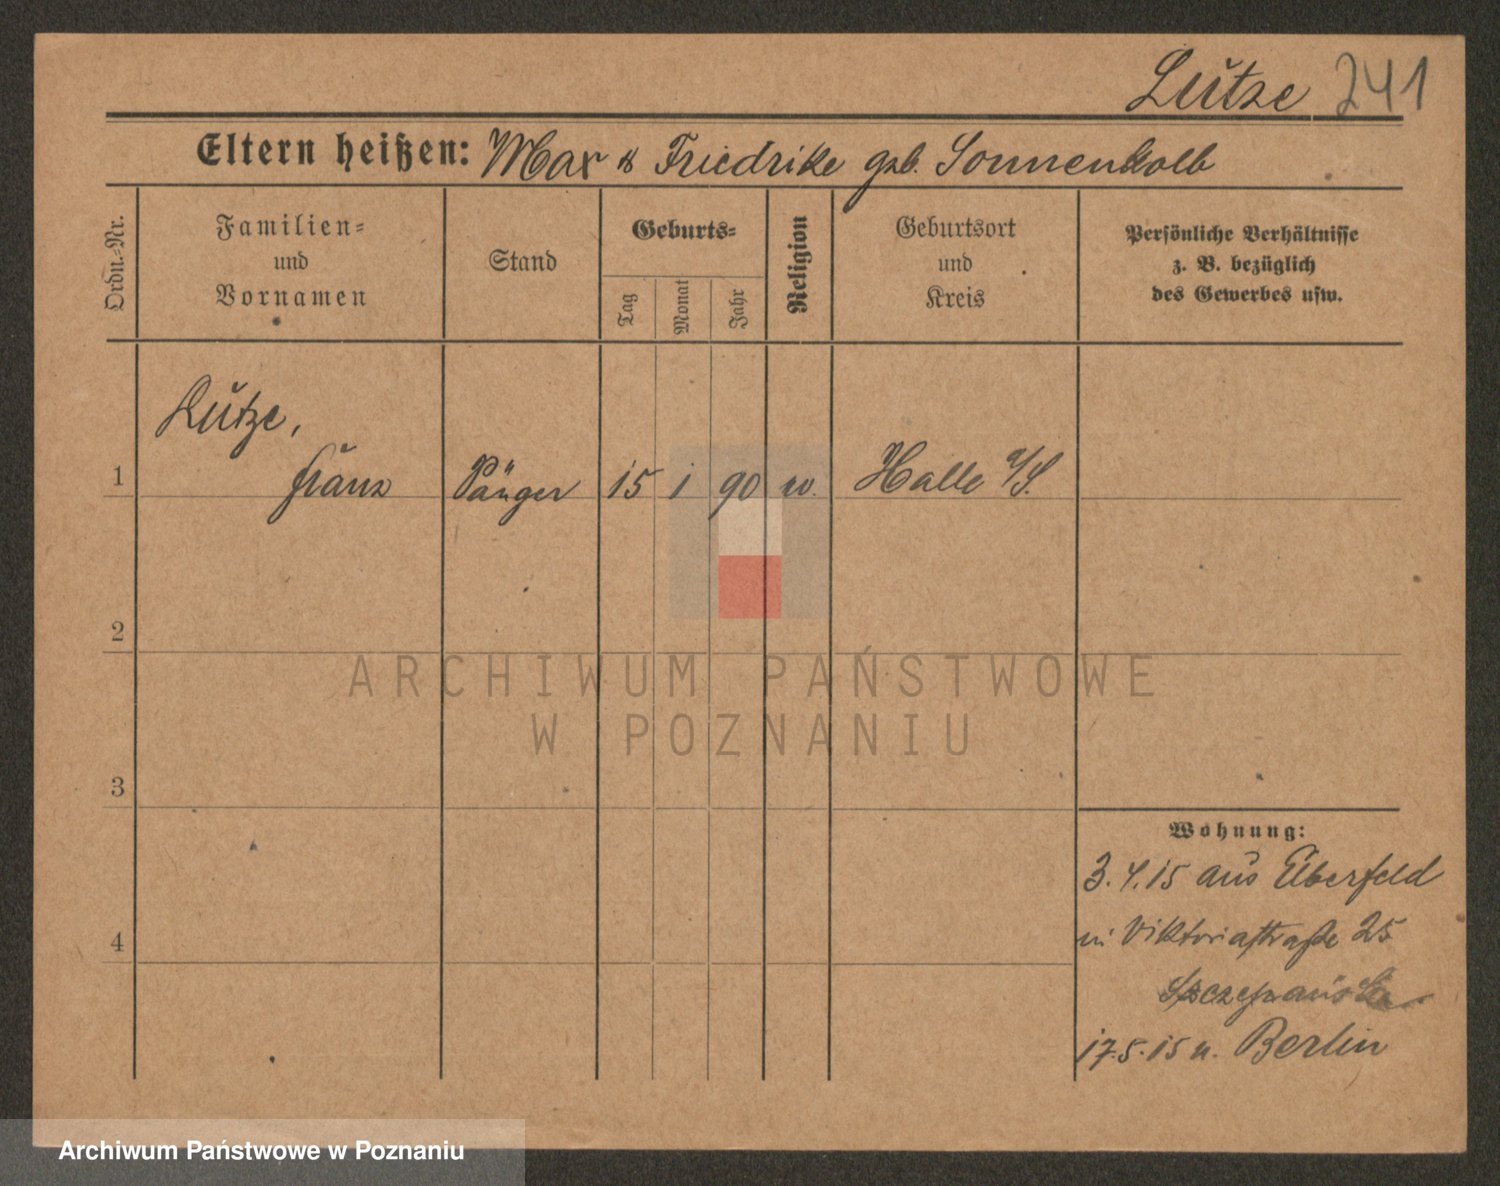 Lutze 241
Eltern heißen: Max & Friedrike geb. Sonnenkalb
Ordn.-Nr.
Familien-
und
Vornamen
Stand
Geburts-
Tag
Monat
Jahr
Religion
Geburtsort
und
Kreis
Persönliche Verhältnisse
z. B. bezüglich
des Gewerbes usw.
Lutze,
1 Franz Sänger 15 1 90 Halle a/S.
2
3
4
Wohnung:
3.4.15 aus Elberfeld
Viktoriastraße 25
Szczepanska
17.5.15 n. Berlin
ARCHIWUM PAŃSTWOWE
W POZNANIU
Archiwum Państwowe w Poznaniu